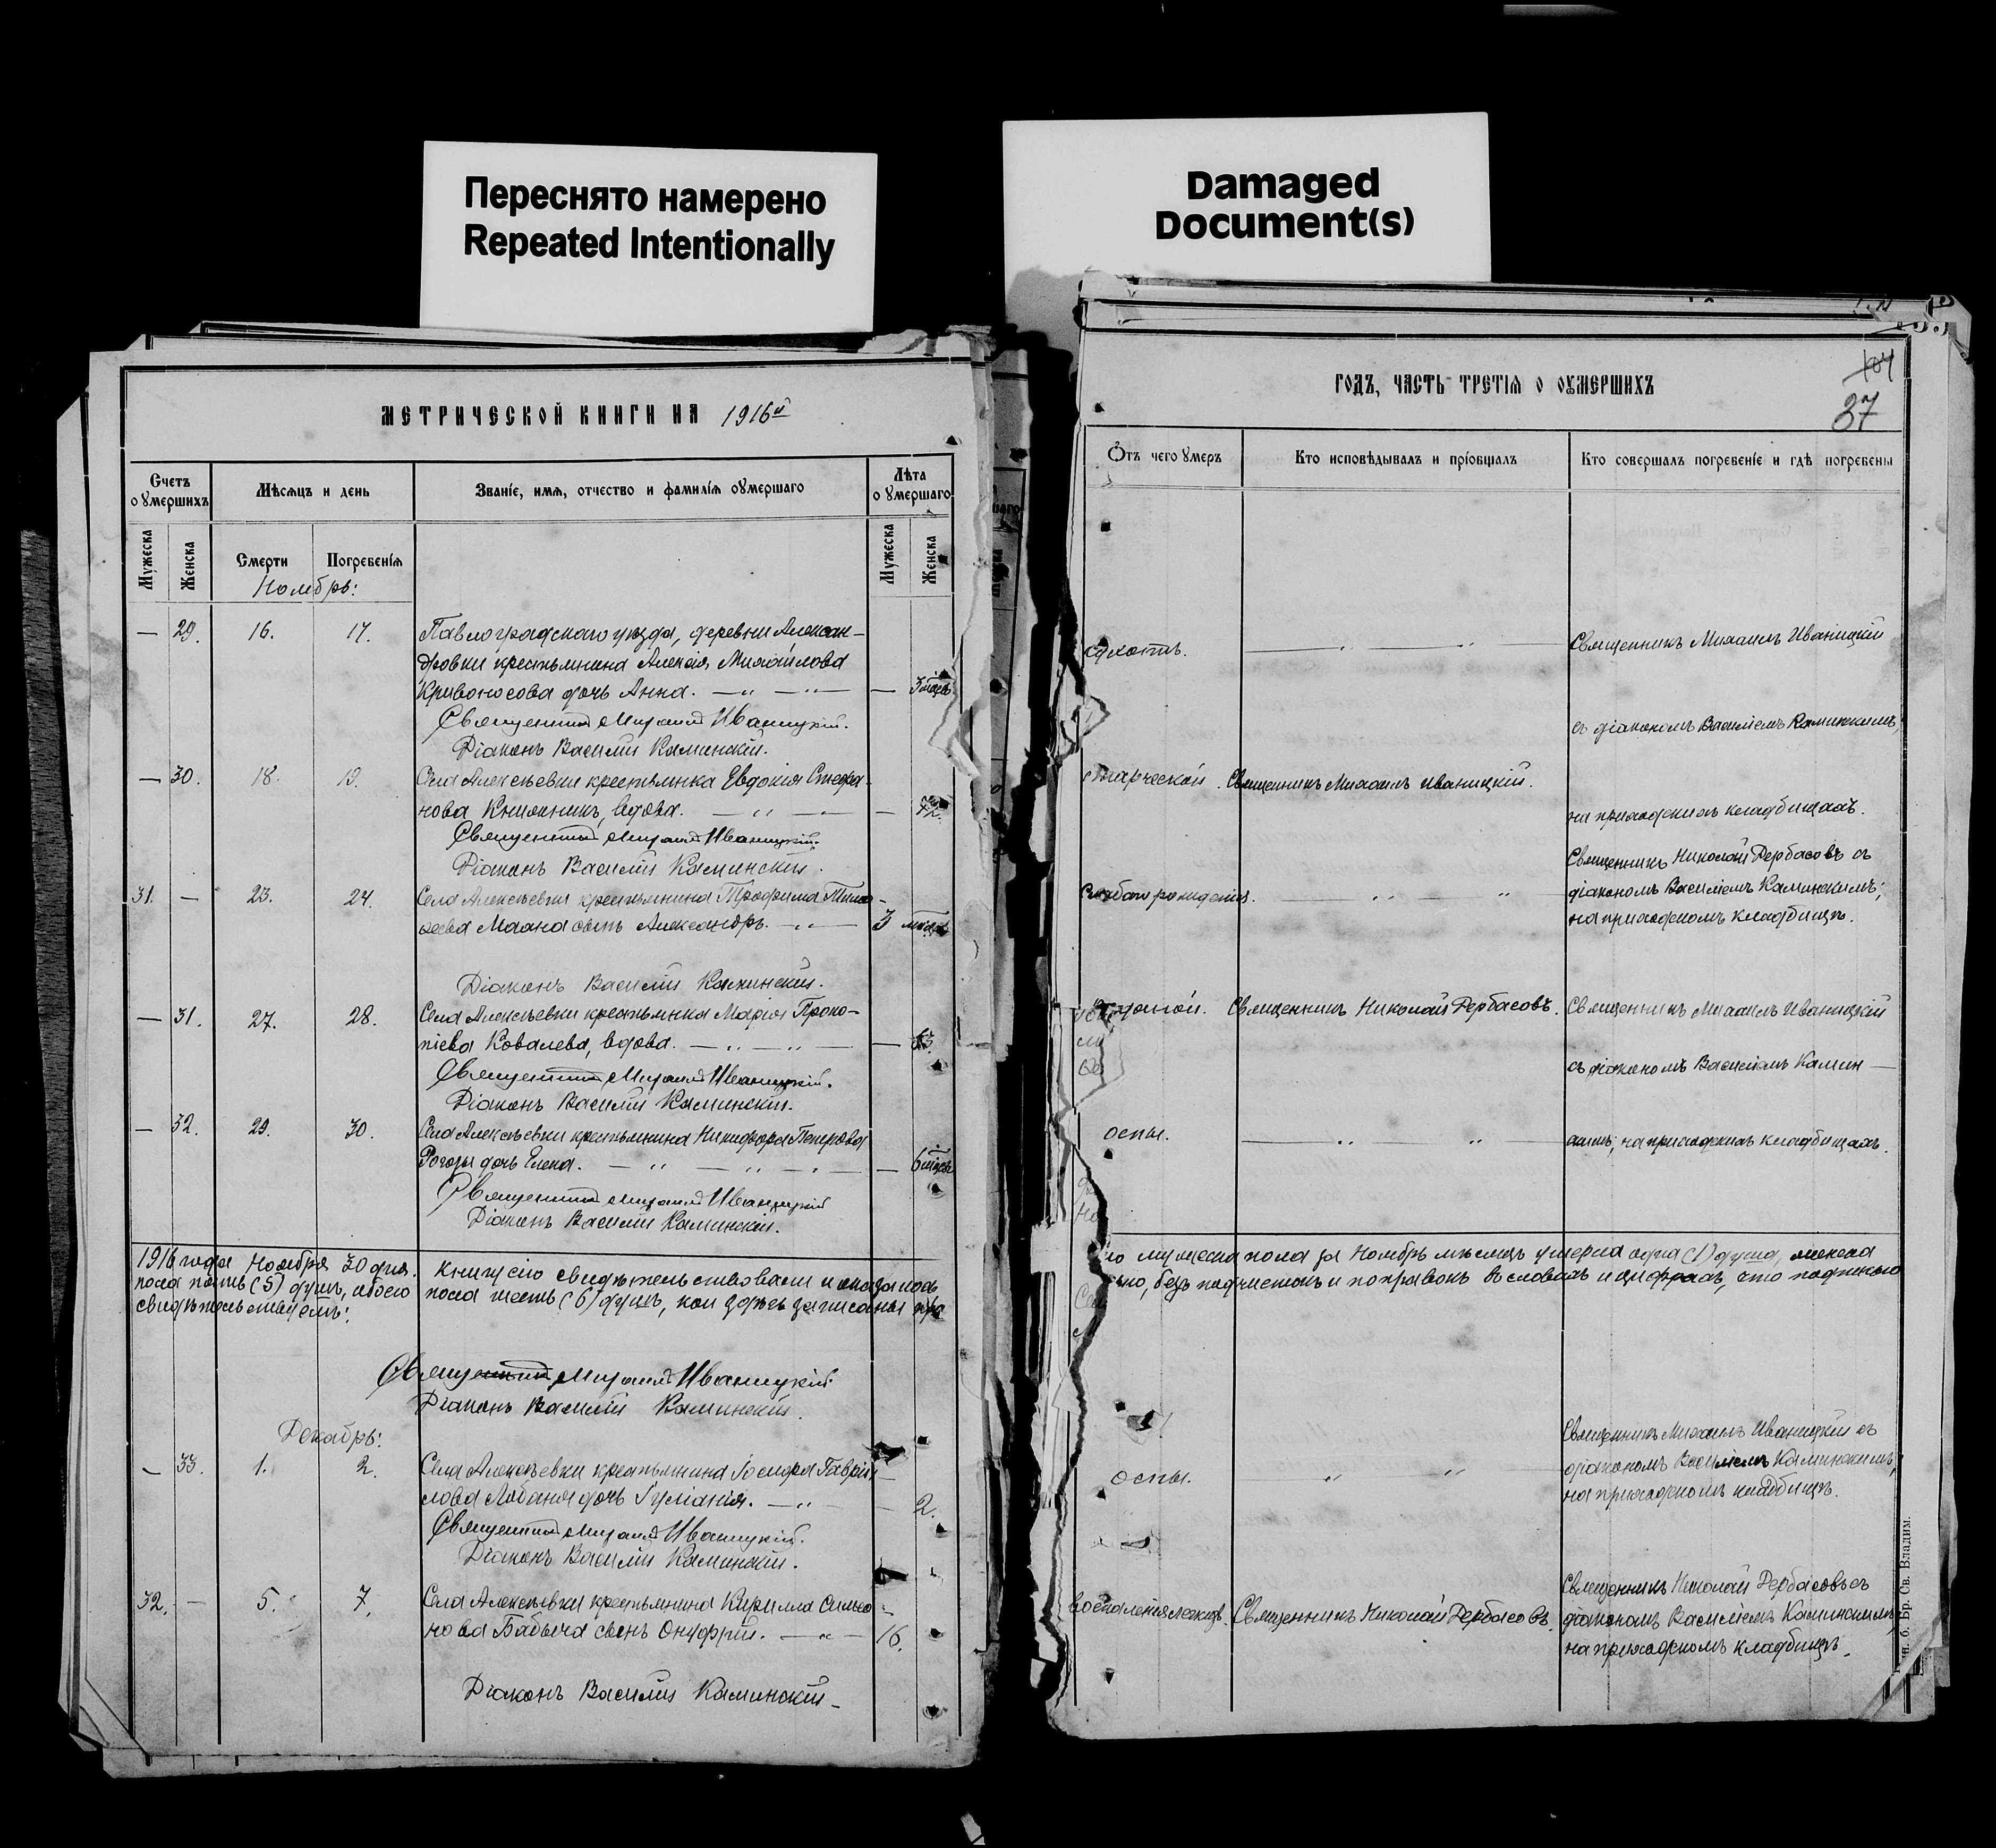 Переснято намерено
Repeated Intentionally
Damaged
Document(s)
МЕТРИЧЕСКОЙ КНИГИ НА 1916й
Счетъ
о умершихъ
Мѣсяцъ и день
Званіе, имя, отчество и фамилія оумершаго
Лѣта
о умершаго
Мужеска
Женска
Смерти
Погребенія
Мужеска
Женска
Ноябрь:
— 29. 16. 17. Павлоградскаго уѣзда, деревни Алексан-
дровки крестьянина Алексія Михайлова
Кривоносова дочь Анна. — 3 мѣсъ
Священникъ Михаилъ Иваницкій.
Діаконъ Василій Каминскій.
— 30. 18. 19. Села Алексѣевки крестьянка Евдокія Стефа-
нова, вдова. — 72.
Священникъ Михаилъ Иваницкій.
Діаконъ Василій Каминскій.
31. — 23. 24. Села Алексѣевки крестьянина Трофима Тимо-
ѳеева сынъ Александръ. 3 мѣсяц
Діаконъ Василій Каминскій.
— 31. 27. 28. Села Алексѣевки крестьянка Марія Проко-
піева Ковалева, вдова. —
Священникъ Михаилъ Иваницкій.
Діаконъ Василій Каминскій.
— 32. 29. 30. Села Алексѣевки крестьянина Никифора Петрова
дочь Елена. — 6 мѣсяц
Священникъ Михаилъ Иваницкій
Діаконъ Василій Каминскій.
1916 года Ноября 30 дня. Книгу сію свидѣтельствовали и оказалось
пола пять (5) душъ, обоего пола шесть (6) душъ, кои здѣсь записаны пра
свидѣтельствуемъ:
Священникъ Михаилъ Иваницкій
Діаконъ Василій Каминскій.
Декабрь:
— 33. 1. 2. Села Алексѣевки крестьянина Іосифа Гаврии-
лова дочь Іуліанія. — 2.
Священникъ Михаилъ Иваницкій.
Діаконъ Василій Каминскій.
32. — 5. 7. Села Алексѣевки крестьянина Кирилла Симео-
нова Бабыча сынъ Онуфрій. 16.
Діаконъ Василій Каминскій
ГОДЪ, ЧАСТЬ ТРЕТІЯ О ОУМЕРШИХЪ
104
37
Отъ чего умеръ
Кто исповѣдывалъ и пріобщалъ
Кто совершалъ погребеніе и гдѣ погребены
Священникъ Михаилъ Иваницкій
съ діакономъ Василіемъ Каминскимъ,
старческой. Священникъ Михаилъ Иваницкій.
на приходскихъ кладбищахъ.
Священникъ Николай Дербасовъ съ
діакономъ Василіемъ Каминскимъ;
на приходскомъ кладбищѣ.
Священникъ Николай Дербасовъ. Священникъ Михаилъ Иваницкій
съ діакономъ Василіемъ Камин-
оспы. скимъ; на приходскихъ кладбищахъ.
мужеска пола за Ноябрь мѣсяцъ умерла одна (1) душа, женска
но, безъ подчистокъ и поправокъ въ словахъ и цифрахъ, что подписью
Священникъ Михаилъ Иваницкій съ
оспы. діакономъ Василіемъ Каминскимъ,
на приходскомъ кладбищѣ.
Священникъ Николай Дербасовъ съ
воспаленія легкихъ. Священникъ Николай Дербасовъ. діакономъ Василіемъ Каминскимъ,
на приходскомъ кладбищѣ.
б. Бр. Св. Владим.